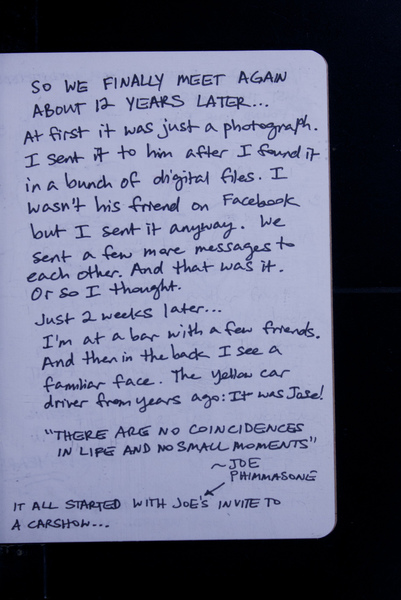 SO WE FINALLY MEET AGAIN
ABOUT 12 YEARS LATER...
At first it was just a photograph.
I sent it to him after I found it
in a bunch of digital files. I
wasn't his friend on Facebook
but I sent it anyway. We
sent a few more messages to
each other. And that was it.
Or so I thought.
Just 2 weeks later...
I'm at a bar with a few friends.
And then in the back I see a
familiar face. The yellow car
driver from years ago: It was Jose!
"THERE ARE NO COINCIDENCES
IN LIFE AND NO SMALL MOMENTS"
~JOE
PHIMMASONE
IT ALL STARTED WITH JOE'S INVITE TO
A CARSHOW...